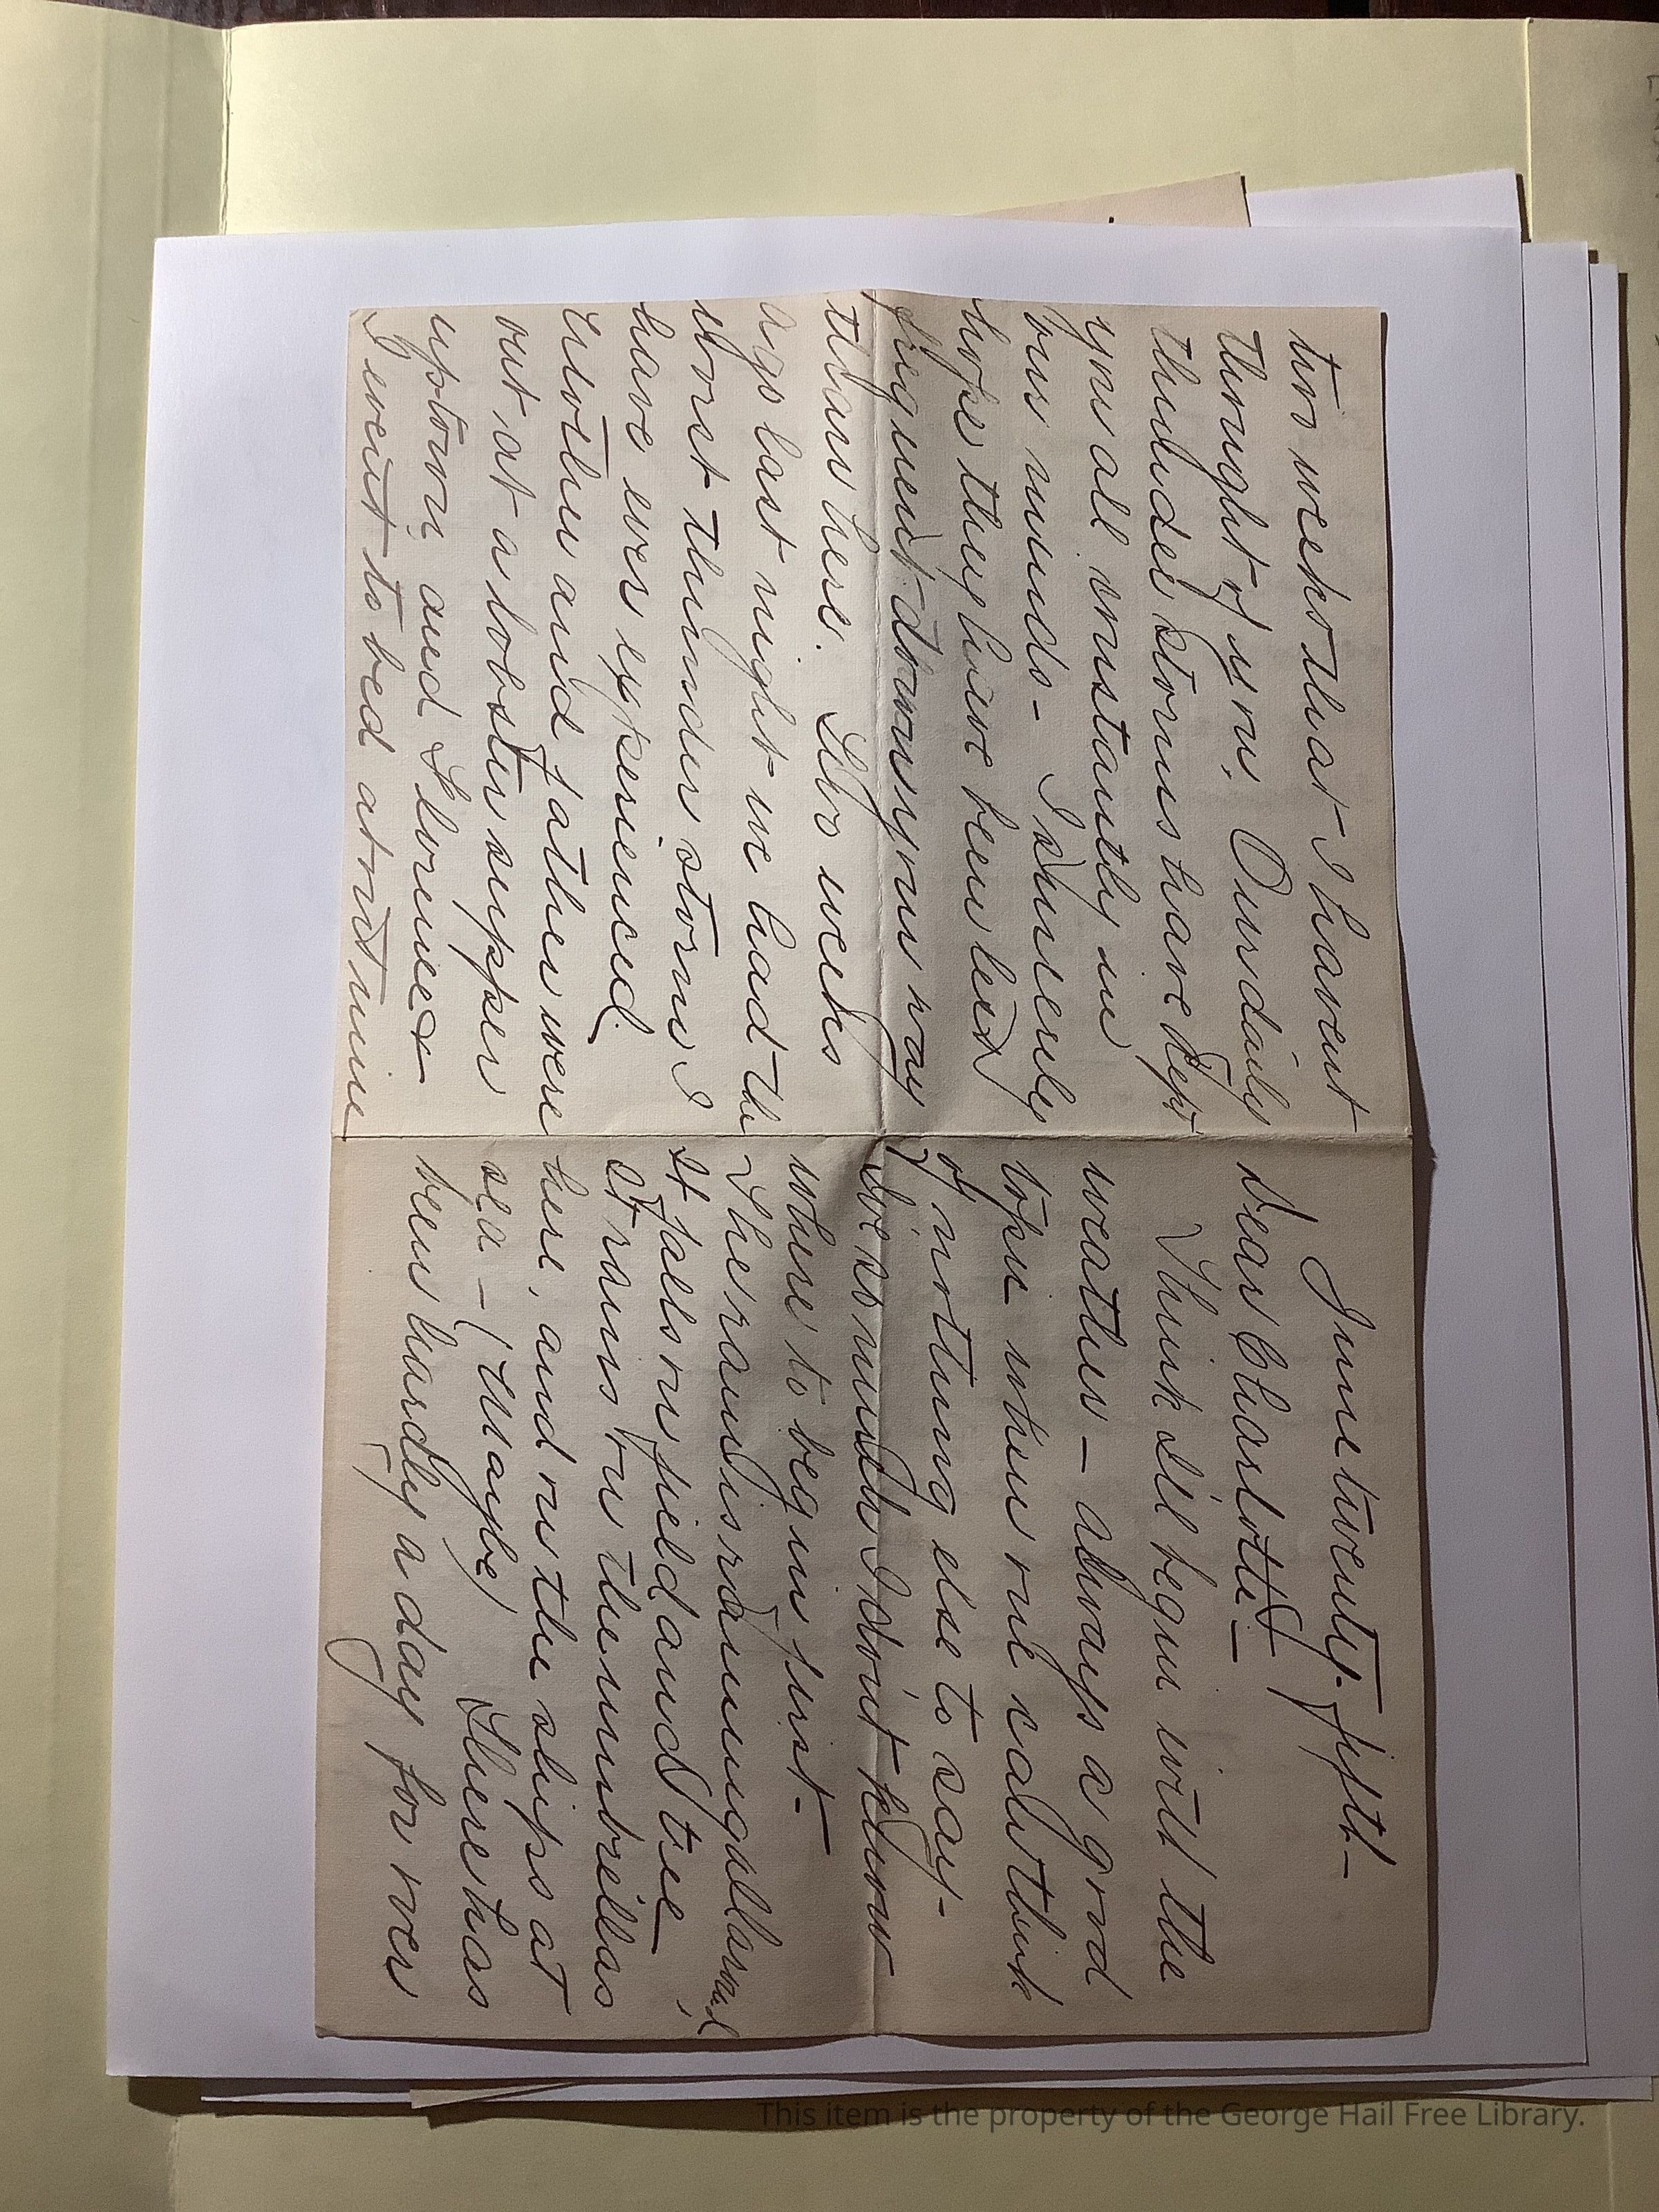 June twenty-fifth-
Dear Charlotte-
Think I'll begin with the
weather - always a good
topic when one can think
of nothing else to say-
I've so much I don't know
where to begin first-
"The rain is raining all around
It falls on field and tree,
It rains on the umbrellas
here, and on the ships at
sea - (Maybe) There has
been hardly a day for over
two weeks that I havent
thought of you. Our daily
thunder storms have kept
you all constantly in
our minds - I sincerely
hope they have been less
frequent down your way
than here. Two weeks
ago last night we had the
worst thunder storm I
have ever experienced.
Mother and father were
out at a lobster supper
uptown, and Florence &
I went to bed about nine
This item is the property of the George Hail Free Library.